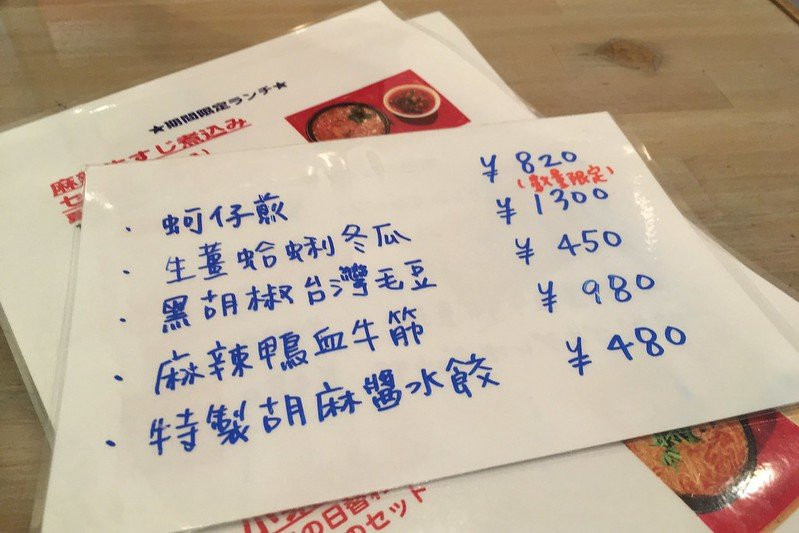 ★期間限定ランチ★
すじ煮込み
・蚵仔煎 ¥820
(数量限定)
・生薑蛤蜊冬瓜 ¥1300
・黑胡椒台灣毛豆 ¥450
・麻辣鴨血牛筋 ¥980
・特製胡麻醬水餃 ¥480
の日替
のセット